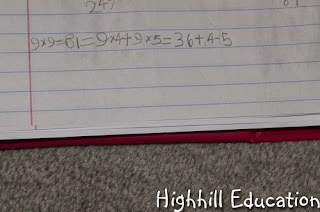 247
9×9=81=9×4+9×5=36+45
Highhill Education